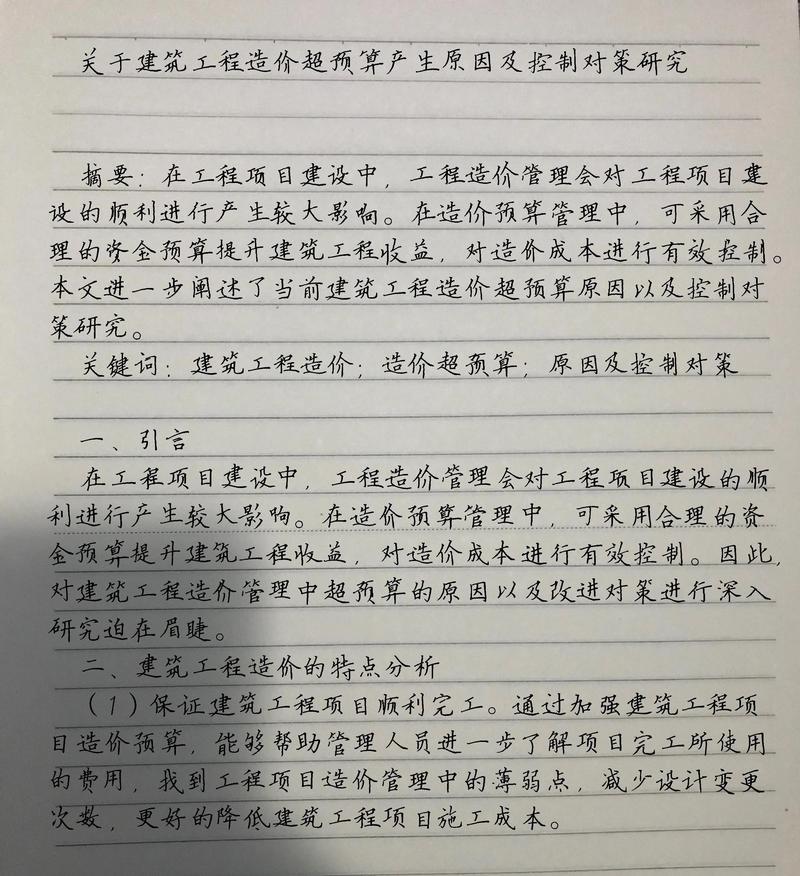 关于建筑工程造价超预算产生原因及控制对策研究
摘要：在工程项目建设中，工程造价管理会对工程项目建
设的顺利进行产生较大影响。在造价预算管理中，可采用合
理的资金预算提升建筑工程收益，对造价成本进行有效控制。
本文进一步阐述了当前建筑工程造价超预算原因以及控制对
策研究。
关键词：建筑工程造价；造价超预算；原因及控制对策
一、引言
在工程项目建设中，工程造价管理会对工程项目建设的顺
利进行产生较大影响。在造价预算管理中，可采用合理的资
金预算提升建筑工程收益，对造价成本进行有效控制。因此，
对建筑工程造价管理中超预算的原因以及改进对策进行深入
研究迫在眉睫。
二、建筑工程造价的特点分析
（1）保证建筑工程项目顺利完工。通过加强建筑工程项
目造价预算，能够帮助管理人员进一步了解项目完工所使用
的费用，找到工程项目造价管理中的薄弱点，减少设计变更
次数，更好的降低建筑工程项目施工成本。